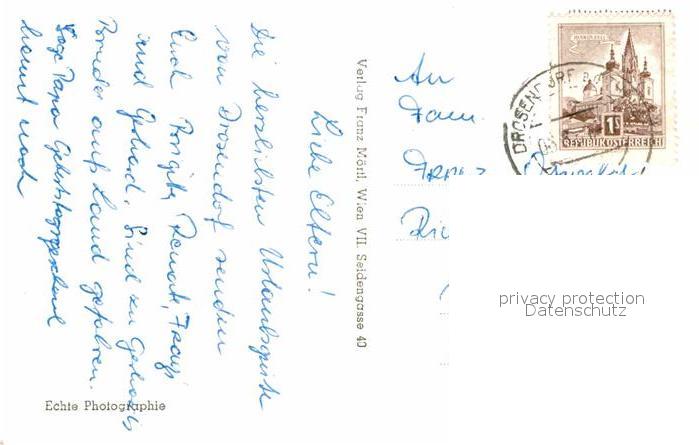 Liebe Eltern!
Die herzlichsten Urlaubsgrüße
von Drosendorf senden
Euch Brigitte, Renate, Franzi
und Gerhard. Sind zu Gerhards
Bruder aufs Land gefahren.
Papa Geburtstagsgeschenk
kommt noch
Echte Photographie
Verlag Franz Mörtl, Wien VII. Seidengasse 40
An
Fam.
MARIAZELL
1S
REPUBLIK ÖSTERREICH
DROSENDORF
privacy protection
Datenschutz